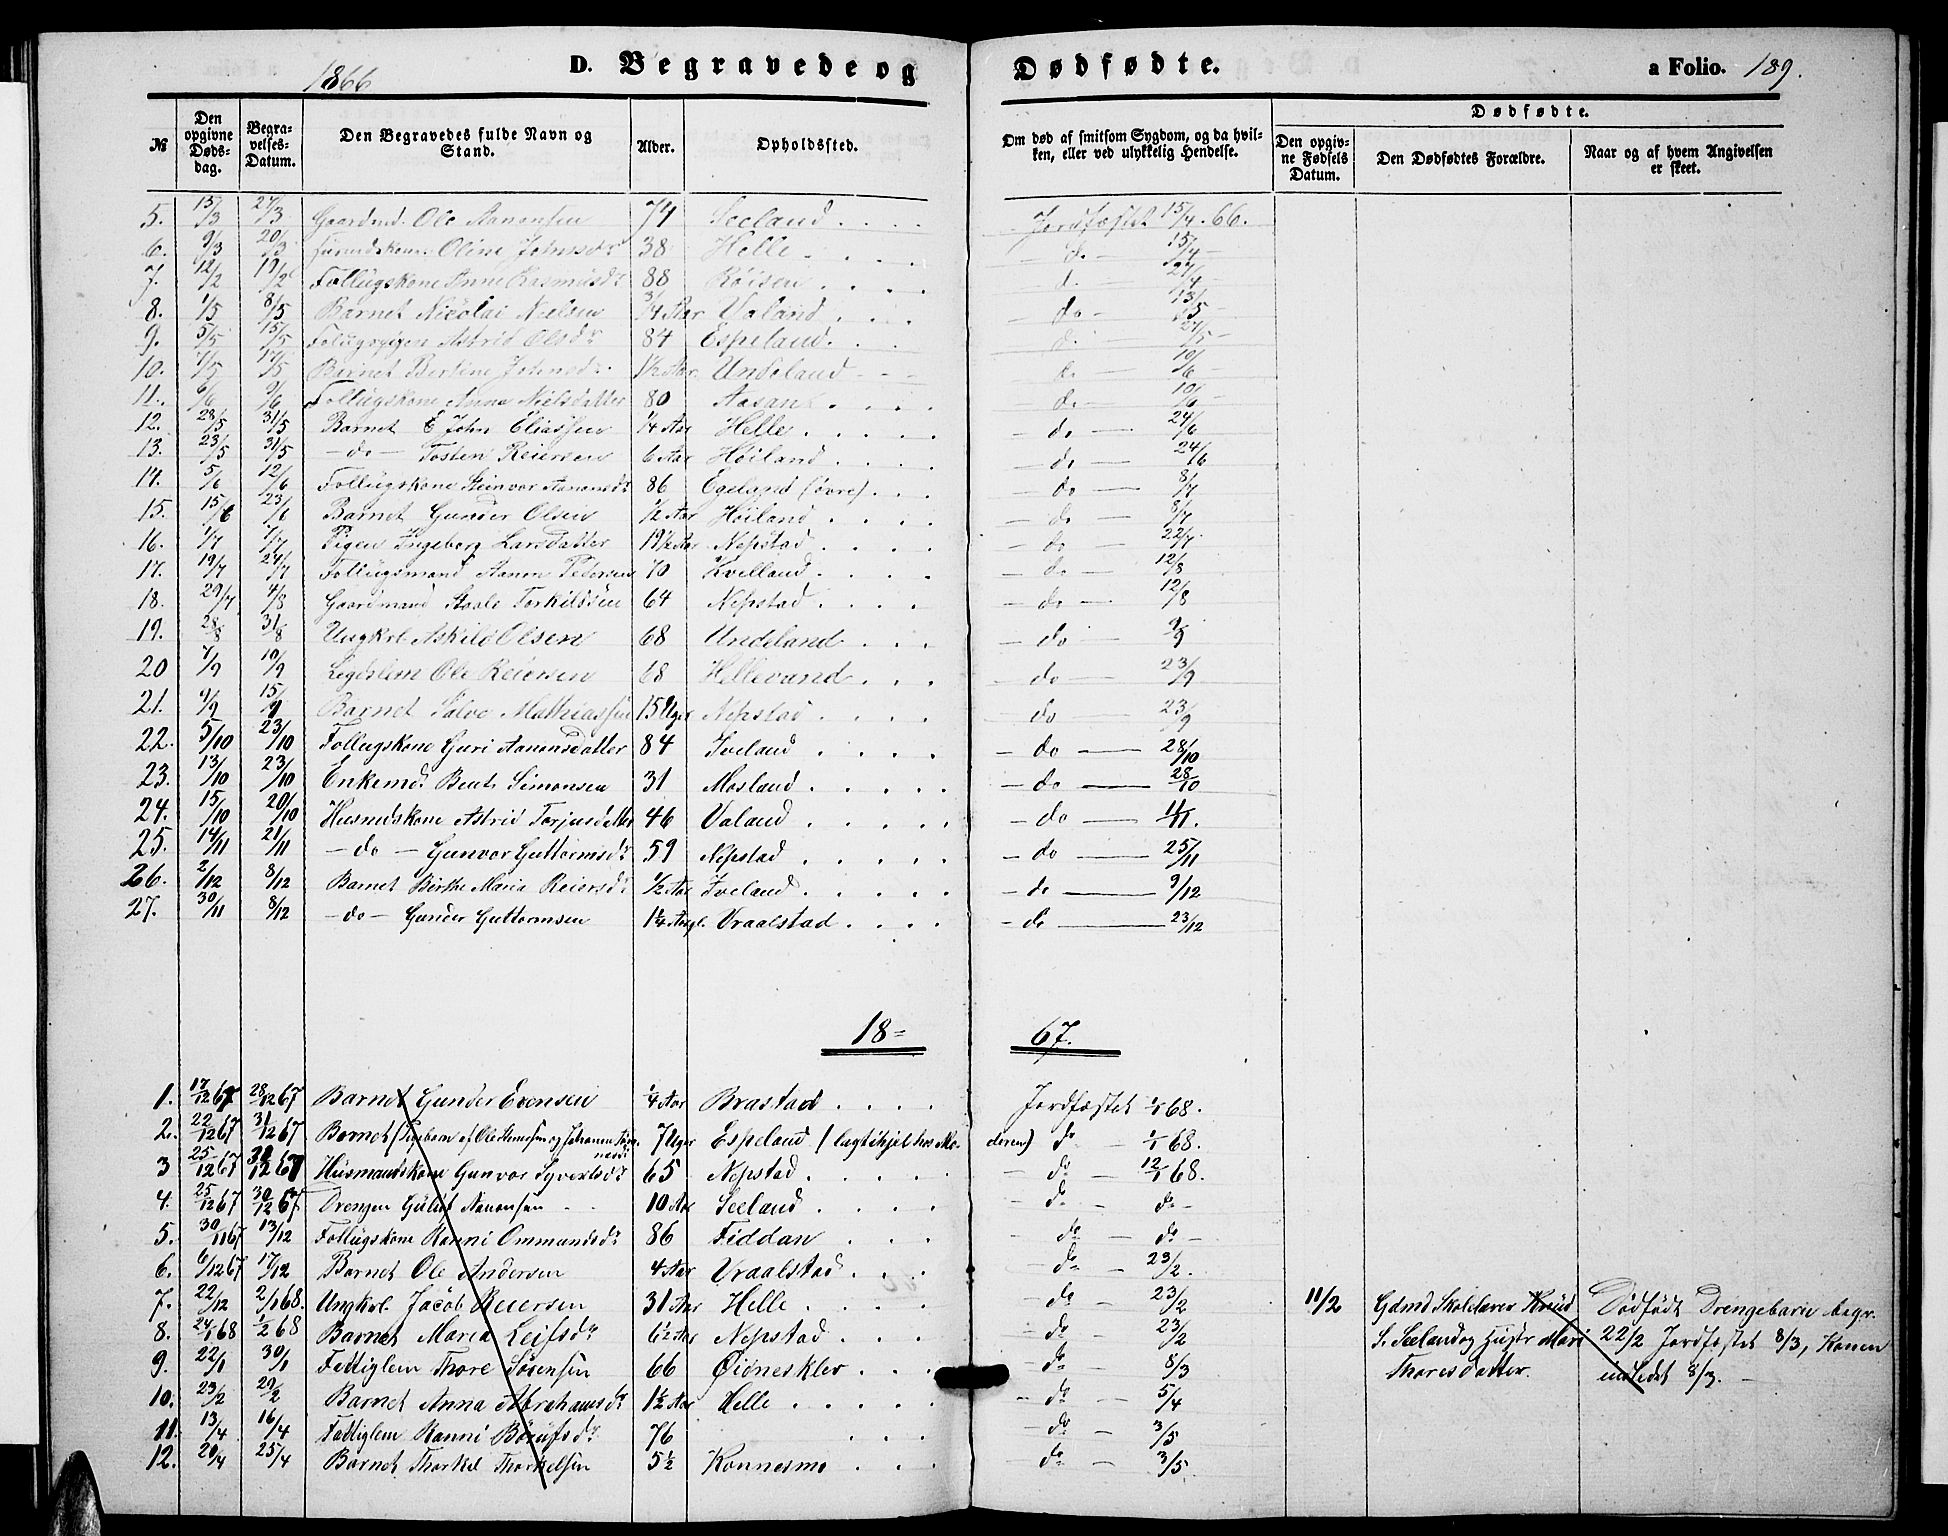 1866
D. Begravede og Dødfødte. a Folio. 189.
№ | Den opgivne Døds-dag. | Begra-velses-Datum. | Den Begravedes fulde Navn og Stand. | Alder. | Opholdssted. | Om død af smitsom Sygdom, og da hvil-ken, eller ved ulykkelig Hendelse. | Dødfødte. | Den opgiv-ne Fødsels Datum. | Den Dødfødtes Forældre. | Naar og af hvem Angivelsen er skeet.
5. 15/3 27/3 Gaardmd. Ole Aanonsen 74 Seeland. Jordfæstet 15/4. 66.
6. 9/3 20/3 Oline Johnsdr 38 Helle do 15/4
7. 12/2 19/2 Follugskone Anne Rasmusdr 88 Røisen d. 27/4
8. 1/5 8/5 Barnet Nicolai Nielsen 3/4 Aar Valand do 13/5
9. 5/5 15/5 Astrid Olsdr 84 Espeland. d. 27/5
10. 7/5 17/5 Barnet Bertine Johnsdr. 1½ Aar Undeland d. 10/6
11. 6/6 9/6 Follugskone Anna Nielsdatter 80 d. 10/6
12. 28/5 31/5 Barnet E John Eliassen ¼ Aar Helle do 24/6
13. 23/5 31/5 -do- Tosten Reiersen 6 Aar Høiland do 24/6
14. 5/6 12/6 Follugskone Steinvor Aanonsdr 86 Egeland (øvre) do 8/7
15. 15/6 23/6 Barnet Gunder Olsen ½ Aar Høiland do 8/7
16. 1/7 7/7 Pigen Ingeborg Larsdatter 19½ Aar Nepstad do 22/7
17. 19/7 27/7 Follugsmand Aanon Pedersen 70 Kvelland do 12/8
18. 29/7 4/8 Gaardmand Aasle Torkildsen 64 Nepstad do 12/8
19. 28/8 31/8 Ungkrl. Askild Olsen 68 Undeland do 9/9
20 7/9 10/9 Legdslem Ole Reiersen 68 Hellevand do 23/9
21. 9/9 15/9 Barnet Salve Mathiassen 15 Uger Nepstad do 23/9
22. 5/10 23/10 Follugskone Guri Aanonsdatter 84 Iveland do 28/10
23. 13/10 23/10 Enkemd. Bent Simonsen 31 Mosland do 28/10
24. 15/10 20/10 Husmdskone Astrid Torjusdatter 46 Valand do 11/11.
25. 14/11 21/11 -do- Gunvor Guttormsdr 59 Nepstad do 25/11
26. 2/12 8/12 Barnet Birthe Maria Reiersdr ½ Aar Iveland do 9/12
27. 30/11 8/12 -do- Gunder Guttormsen 1¼ Vraalstad do 23/12
18= 67.
1. 17/12 67 28/12 67 Barnet Gunder Evensen ¼ Aar Brastad Jordfæstet 1/1 68.
2. 22/12 67 31/12 67 Barnet (Pigebarn af Ole og Johanne 7 Uger Espeland (lagt ihjel hos Moderen) do 1/1 68.
3 25/12 67 31/12 67 Husmandskone Gunvor Syvertsdr 65 Nepstad do 12/1 68.
4. 25/12 67 30/12 67 Drengen Gulut Aanonsen 10 Aar Seeland do do
5. 30/11 67 13/12 Follugskone Ranni Ommundsdr 86 Fiddan do do
6. 6/12 67 17/12 Barnet Ole Andersen 4 Aar Vraalstad do 23/2.
7. 22/12 2/1 68. Ungkrl. Jacob Reiersen 31 Aar Helle do 23/2 | 11/2 Gdmd Skolelærer Knud Dødfødt Drengebarn begr.
8. 24/1 68 1/2 68 Barnet Maria Leifsdr 6½ Aar Nepstad do 23/2 | S. Seeland og Hustr Mari 22/2 Jordfæstet 8/3, Konen
9. 22/1 30/1 Fattiglem Thore Sørensen 66 Øidneskler do 8/3 | Thoresdatter. indledet 8/3.
10. 23/2 29/2 Barnet Anna Abrahamsdr 1½ Aar Helle do 5/4
11. 13/4 16/4 Fattiglem Ranni Børufsdr 76 do 3/5
12. 20/4 25/4 Barnet Thorkel Thorkelsen 5½ Konnesmo do 3/5